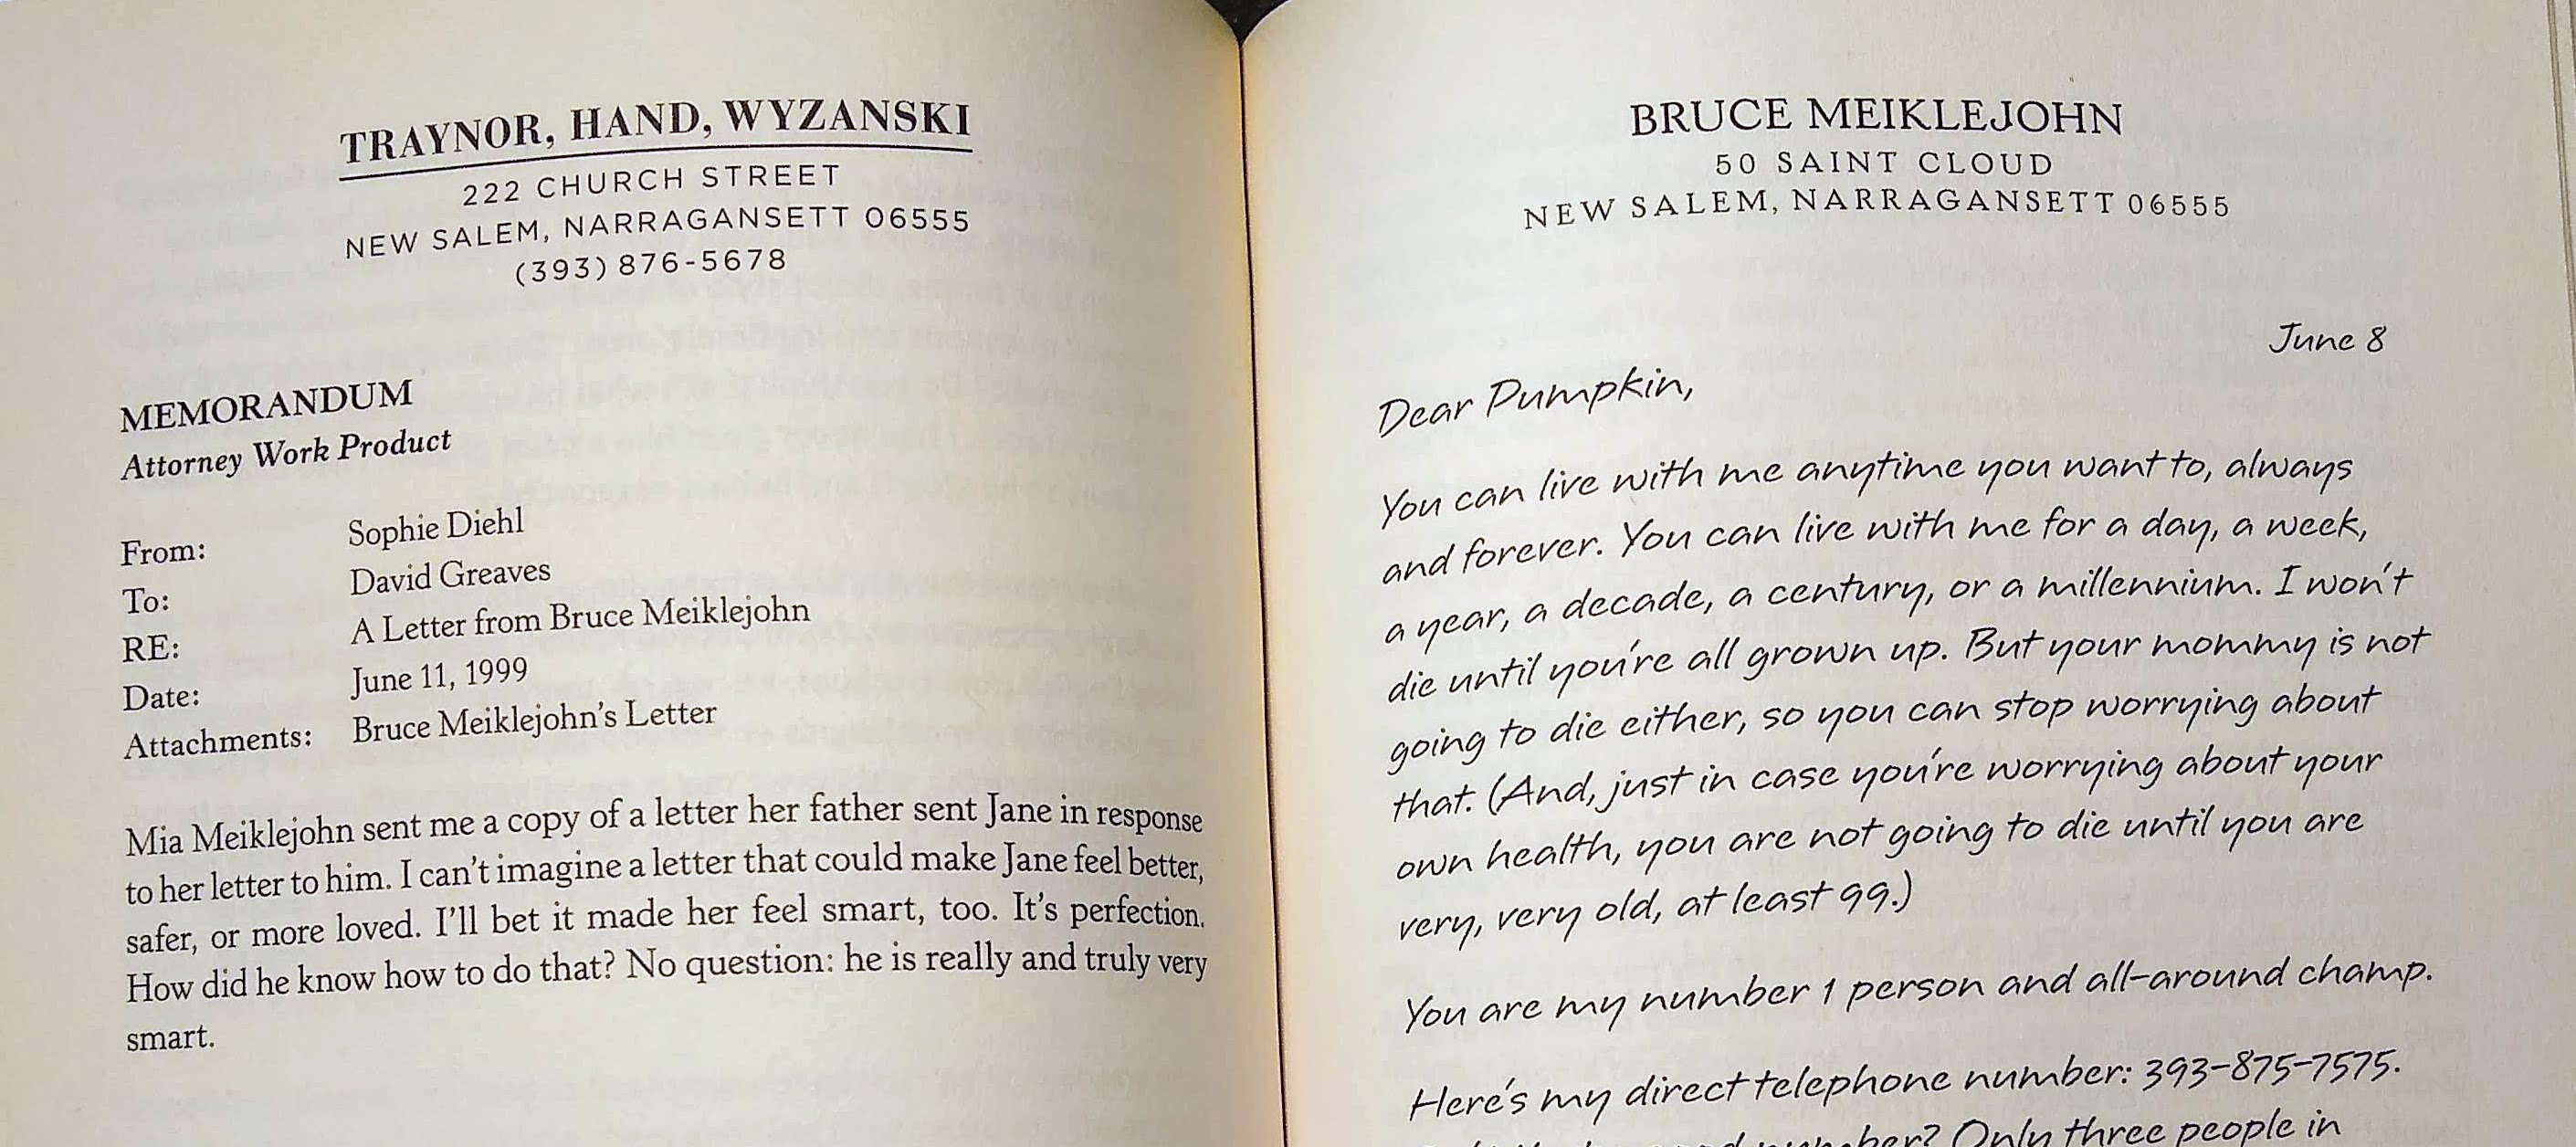 TRAYNOR, HAND, WYZANSKI
222 CHURCH STREET
NEW SALEM, NARRAGANSETT 06555
(393) 876-5678
MEMORANDUM
Attorney Work Product
From: Sophie Diehl
To: David Greaves
RE: A Letter from Bruce Meiklejohn
Date: June 11, 1999
Attachments: Bruce Meiklejohn's Letter
Mia Meiklejohn sent me a copy of a letter her father sent Jane in response
to her letter to him. I can't imagine a letter that could make Jane feel better,
safer, or more loved. I'll bet it made her feel smart, too. It's perfection.
How did he know how to do that? No question: he is really and truly very
smart.
BRUCE MEIKLEJOHN
50 SAINT CLOUD
NEW SALEM, NARRAGANSETT 06555
June 8
Dear Pumpkin,
You can live with me anytime you want to, always
and forever. You can live with me for a day, a week,
a year, a decade, a century, or a millennium. I won't
die until you're all grown up. But your mommy is not
going to die either, so you can stop worrying about
that. (And, just in case you're worrying about your
own health, you are not going to die until you are
very, very old, at least 99.)
You are my number 1 person and all-around champ.
Here's my direct telephone number: 393-875-7575.
number? Only three people in